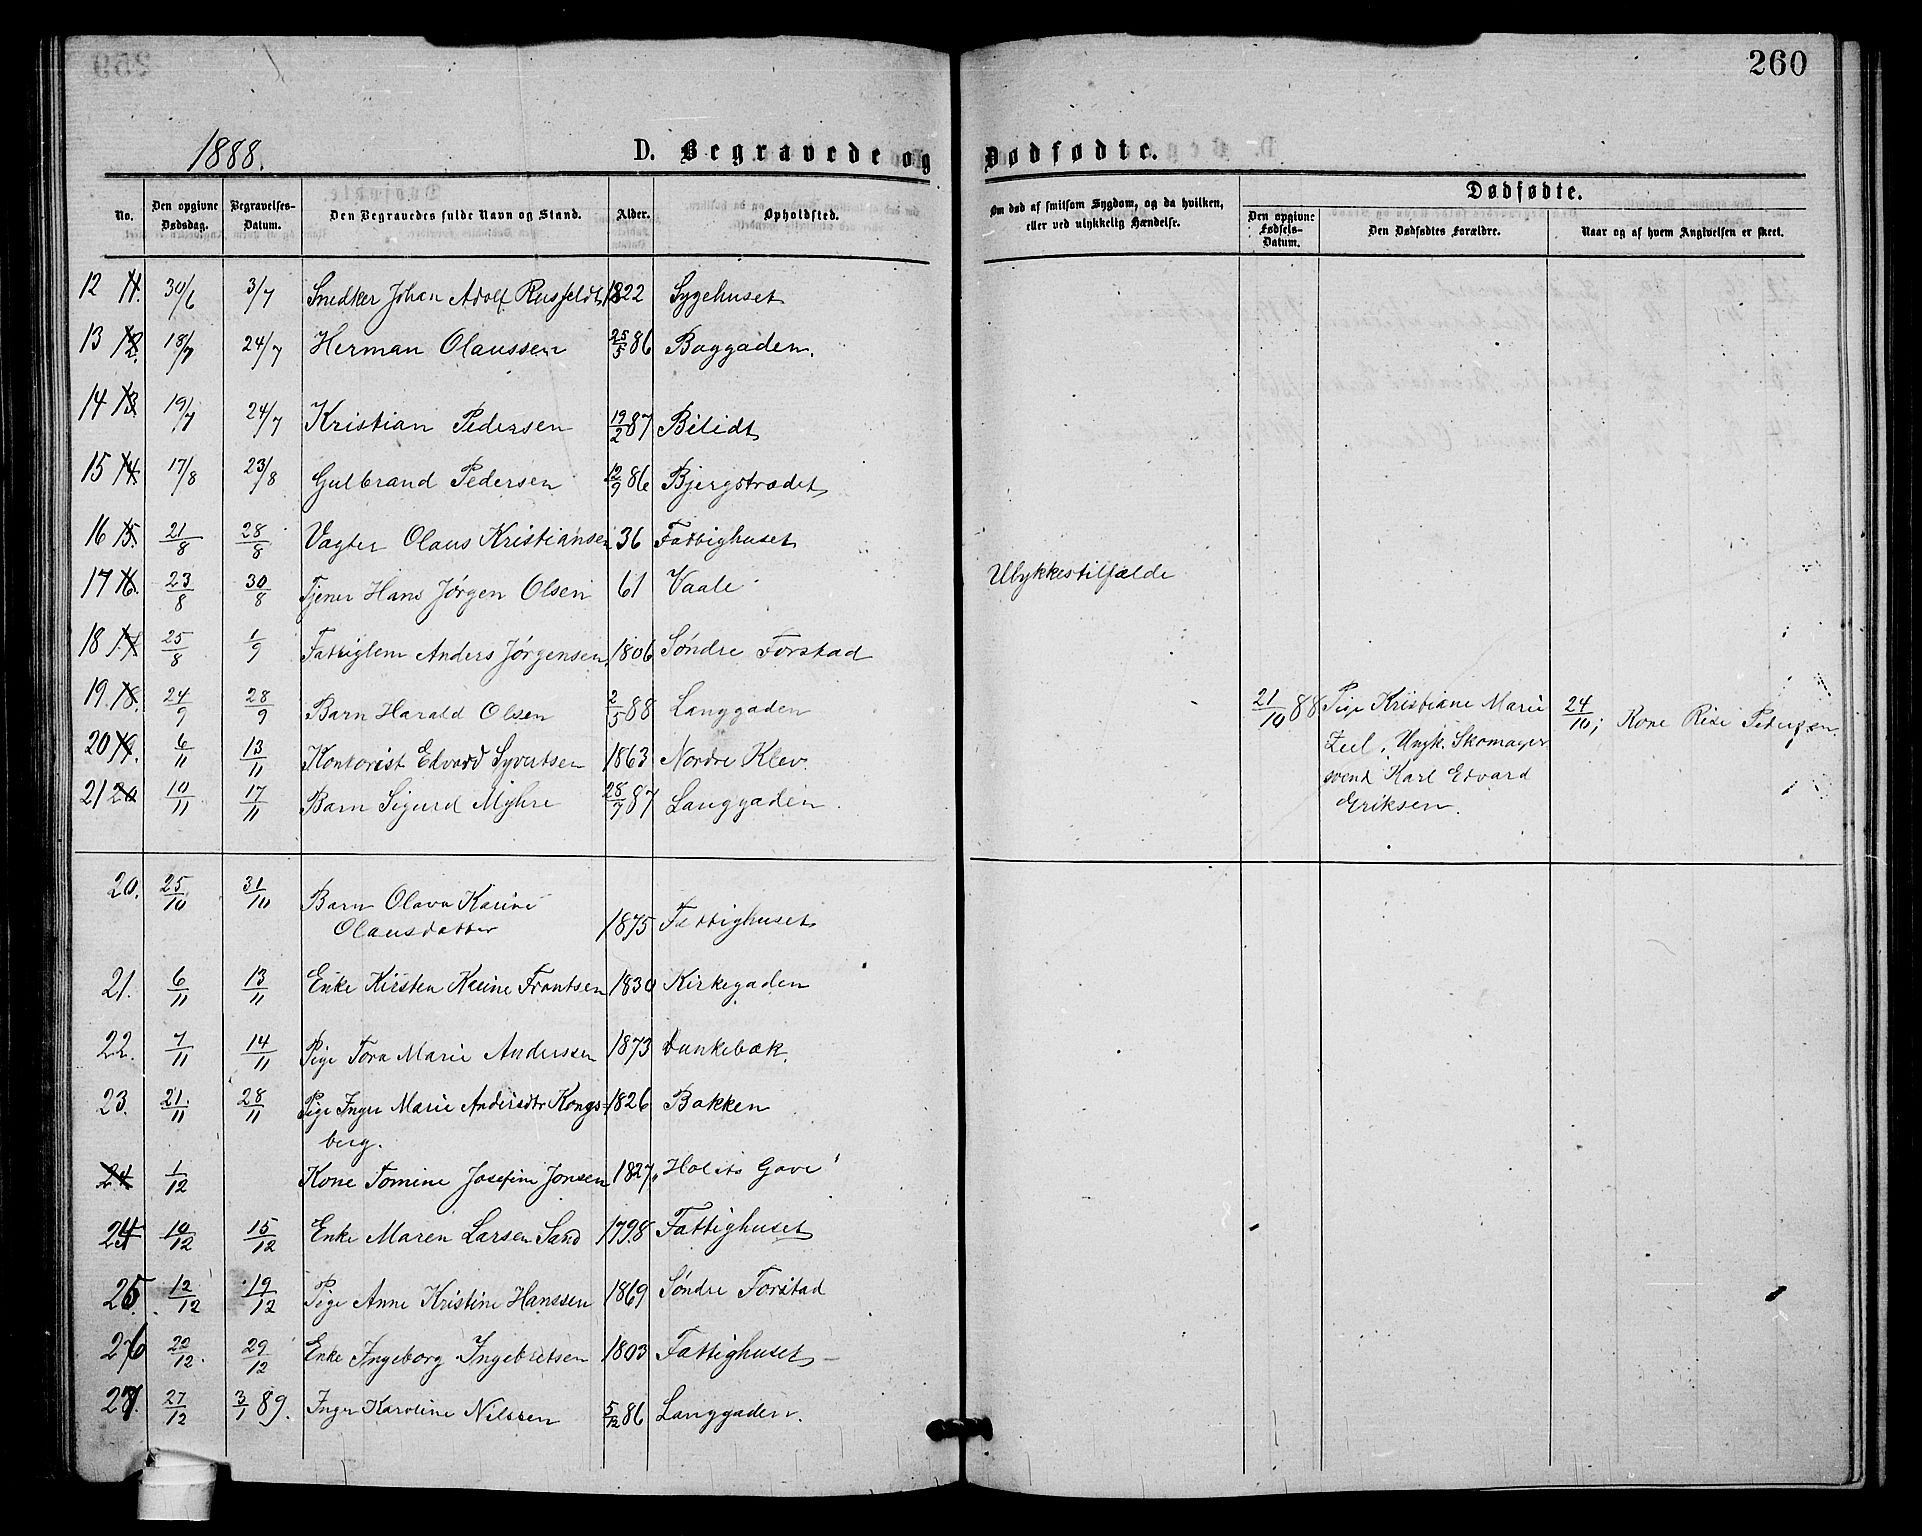 260
1888.
D. Begravede og Dødfødte.
No. Den opgivne Dødsdag. Begravelses-Datum. Den Begravedes fulde Navn og Stand. Alder. Opholdsted.
Om død af smitsom Sygdom, og da hvilken, eller ved ulykkelig Hændelse.
Dødfødte.
Den opgivne Fødsels-Datum. Den Dødfødtes Forældre. Naar og af hvem Angivelsen er skeet.
12 11. 30/6 3/7 Snedker Johan Adolf Rusfeldt 1822 Sygehuset
13 12. 18/7 24/7 Herman Olaussen 25/5 86 Baggaden.
14 13. 19/7 24/7 Kristian Pedersen 19/2 87 Bilidt
15 14. 17/8 23/8 Gulbrand Pedersen 12/9 86 Bjergstrædet
16 15. 21/8 28/8 Vagter Olaus Kristiansen 36 Fattighuset
17 16. 23/8 30/8 Tjener Hans Jørgen Olsen 61 Vaale Ulykkestilfælde
18 17. 25/8 1/9 Fattiglem Anders Jørgensen 1806 Søndre Forstad
19. 18. 24/9 28/9 Barn Harald Olsen 2/5 88 Langgaden
21/10 88 Pige Kristiane Marie 24/10; Kone Rise Pedersen
20 19. 6/11 13/11 Kontorist Edvard Syvertsen 1863 Nordre Klev.
Ungk. Skomager
21 20 10/11 17/11 Barn Sigurd Myhre 28/7 87 Langgaden.
svend Karl Edvard
Eriksen.
20. 25/10 31/10 Barn Olava Karine
Olausdatter 1875 Fattighuset
21. 6/11 13/11 Enke Kirsten Karine Frantsen 1830 Kirkegaden
22. 7/11 14/11 Pige Tora Marie Anderssen 1873 Dunkebæk.
23. 21/11 28/11 Pige Inger Marie Andersdtr Kongs- 1826 Bakken
berg.
24 1/12 Kone Tomine Josefine Jonsen 1827
24 10/12 15/12 Enke Maren Larsen Sand 1798 Fattighuset
25 12/12 19/12 Pige Anne Kristine Hanssen 1869 Søndre Forstad
26 22/12 29/12 Enke Ingeborg Ingebretsen 1803 Fattighuset
27 27/12 3/1 89. Inger Karoline Nilssen 5/12 86 Langgaden.